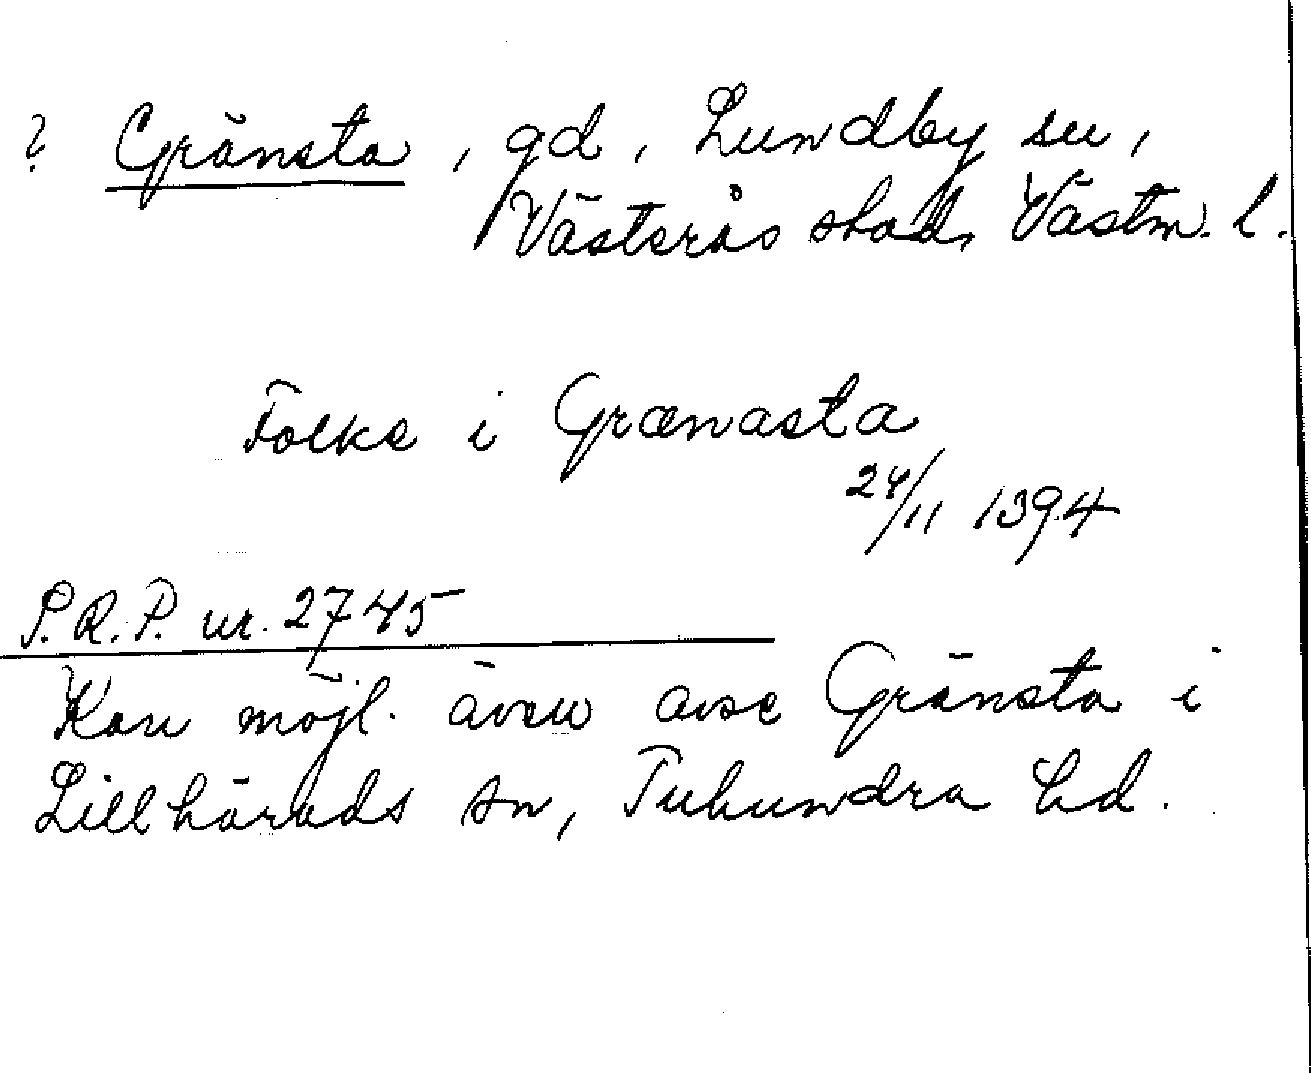 ? Gränsta, gd, Lundby sn,
Västerås stad, Västm. l.
Folke i Grænasta
24/11 1394
S.R.P. nr. 2745
Kan möjl. även avse Gränsta i
Lillhärads sn, Tuhundra hd.